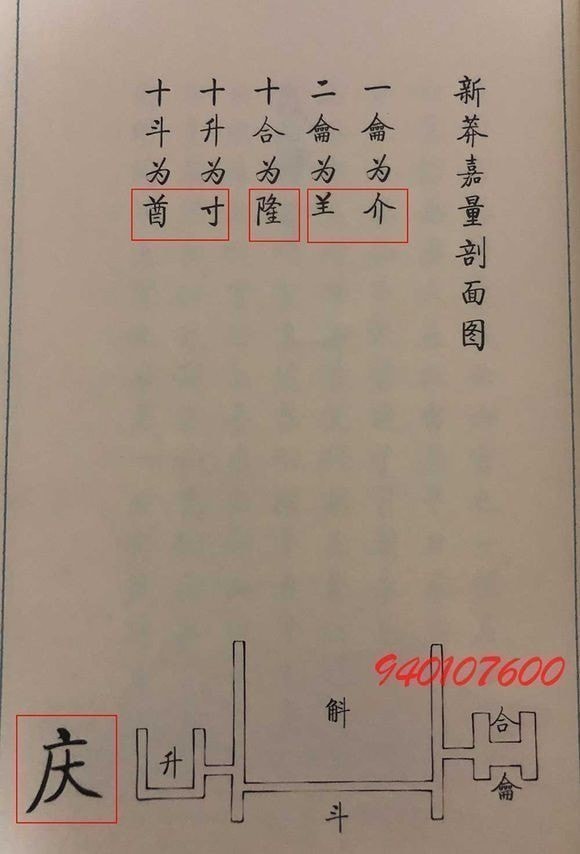 新莽嘉量剖面图
一龠为介
二龠为𦍌
十合为隆
十升为寸
十斗为酋
940107600
斛
升
斗
合
龠
庆